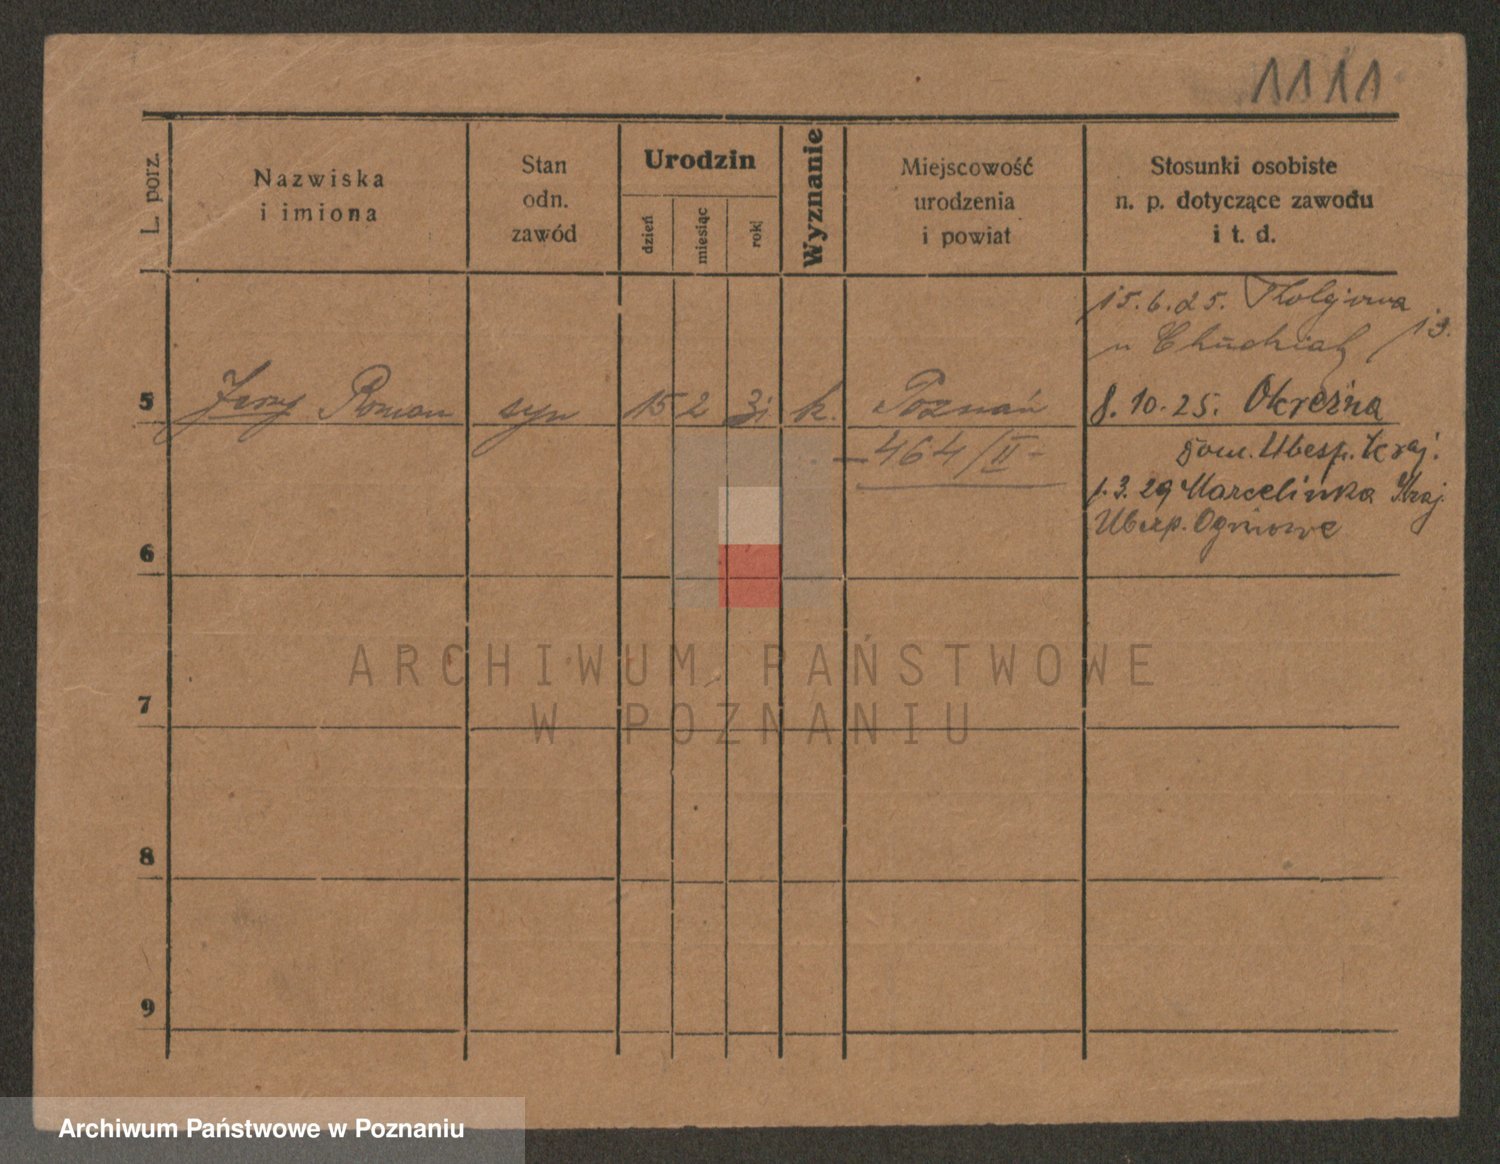 1111
L. porz.
Nazwiska
i imiona
Stan
odn.
zawód
Urodzin
dzień
miesiąc
rok
Wyznanie
Miejscowość
urodzenia
i powiat
Stosunki osobiste
n. p. dotyczące zawodu
i t. d.
15.6.25.
u 13.
5 Jerzy Roman syn 15 2 31 k. Poznań 8.10.25. Okrężna
—464/II-
dom. Ubesp. Kraj.
1.3.29 Marcelinka Kraj.
Ubezp. Ogniowe
6
ARCHIWUM PAŃSTWOWE
W POZNANIU
7
8
9
Archiwum Państwowe w Poznaniu